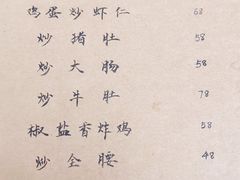 鸡蛋炒虾仁 68
炒猪肚 58
炒大肠 58
炒牛肚 78
椒盐香炸鸡 58
炒全腰 48